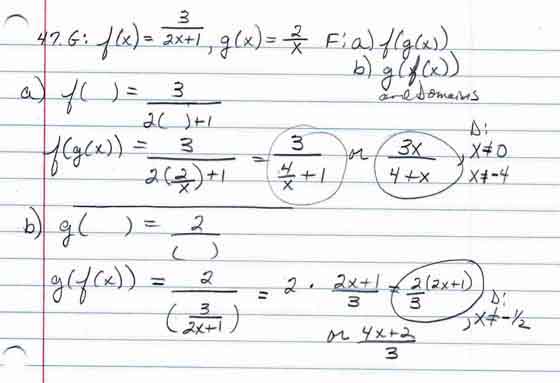 47. G: f(x) = 3/(2x+1), g(x) = 2/x F: a) f(g(x))
b) g(f(x))
and Domains
a) f( ) = 3/(2( )+1)
f(g(x)) = 3/(2(2/x)+1) = 3/(4/x + 1) or 3x/(4+x), D: x≠0 x≠-4
b) g( ) = 2/( )
g(f(x)) = 2/(3/(2x+1)) = 2 · (2x+1)/3 = 2(2x+1)/3, D: x≠-1/2
or (4x+2)/3